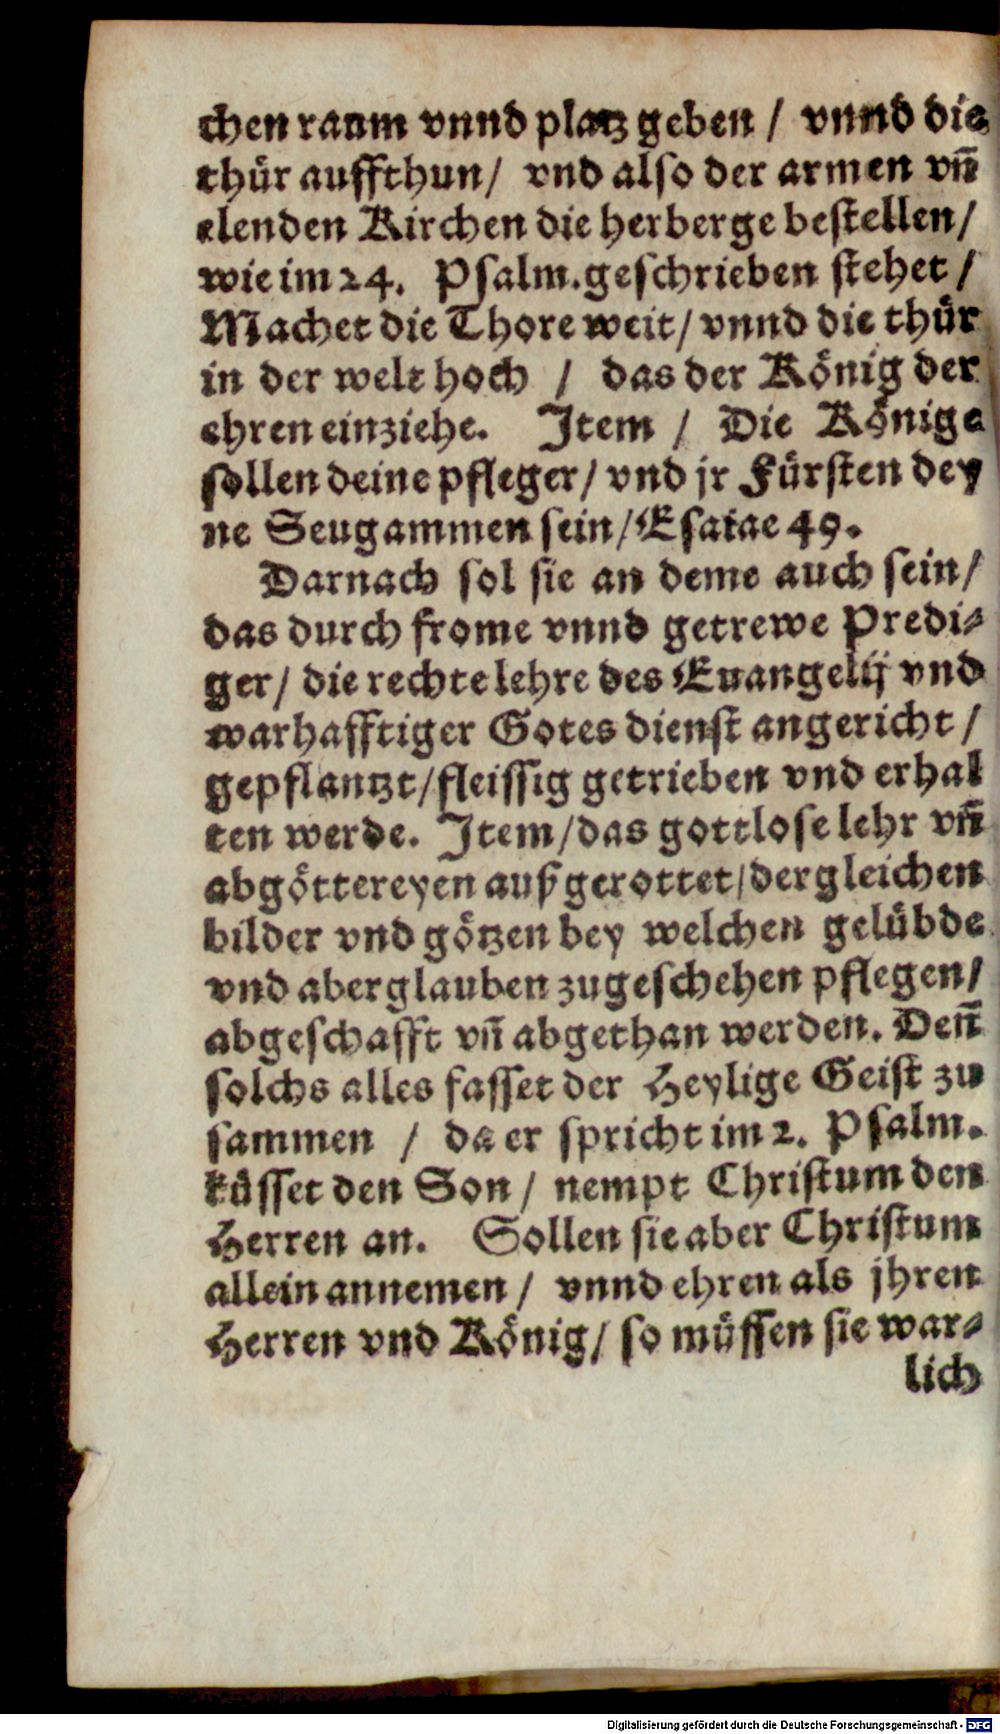 chen raum vnnd platz geben / vnnd die
thür auffthun/ vnd also der armen vn̄
elenden Kirchen die herberge bestellen/
wie im 24. Psalm. geschrieben stehet /
Machet die Thore weit/ vnnd die thür
in der welt hoch / das der König der
ehren einziehe. Item / Die Könige
sollen deine pfleger/ vnd jr Fürsten dey
ne Seugammen sein/ Esaiae 49.
Darnach sol sie an deme auch sein/
das durch frome vnnd getrewe Predi⸗
ger/ die rechte lehre des Euangelij vnd
warhafftiger Gotes dienst angericht /
gepflantzt/ fleissig getrieben vnd erhal
ten werde. Item/ das gottlose lehr vn̄
abgöttereyen außgerottet/ dergleichen
bilder vnd götzen bey welchen gelübde
vnd aberglauben zugeschehen pflegen/
abgeschafft vn̄ abgethan werden. Den̄
solchs alles fasset der Heylige Geist zu
sammen / da er spricht im 2. Psalm.
küsset den Son / nempt Christum den
Herren an. Sollen sie aber Christum
allein annemen / vnnd ehren als jhren
Herren vnd König/ so müssen sie war⸗
lich
Digitalisierung gefördert durch die Deutsche Forschungsgemeinschaft - DFG